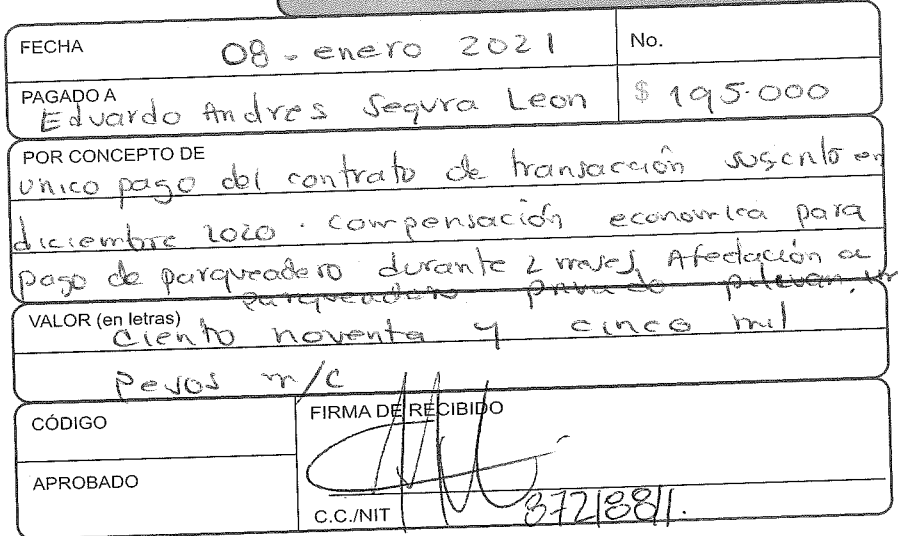 FECHA 08 - enero 2021 No.
PAGADO A Eduardo Andres Segura Leon $ 195.000
POR CONCEPTO DE
unico pago del contrato de transacción suscrito en
diciembre 2020. compensación economica para
pago de parqueadero durante 2 meses, Afectación a
parqueadero privado
VALOR (en letras) Ciento noventa y cinco mil
pesos m/c
CÓDIGO FIRMA DE RECIBIDO
APROBADO
C.C./NIT